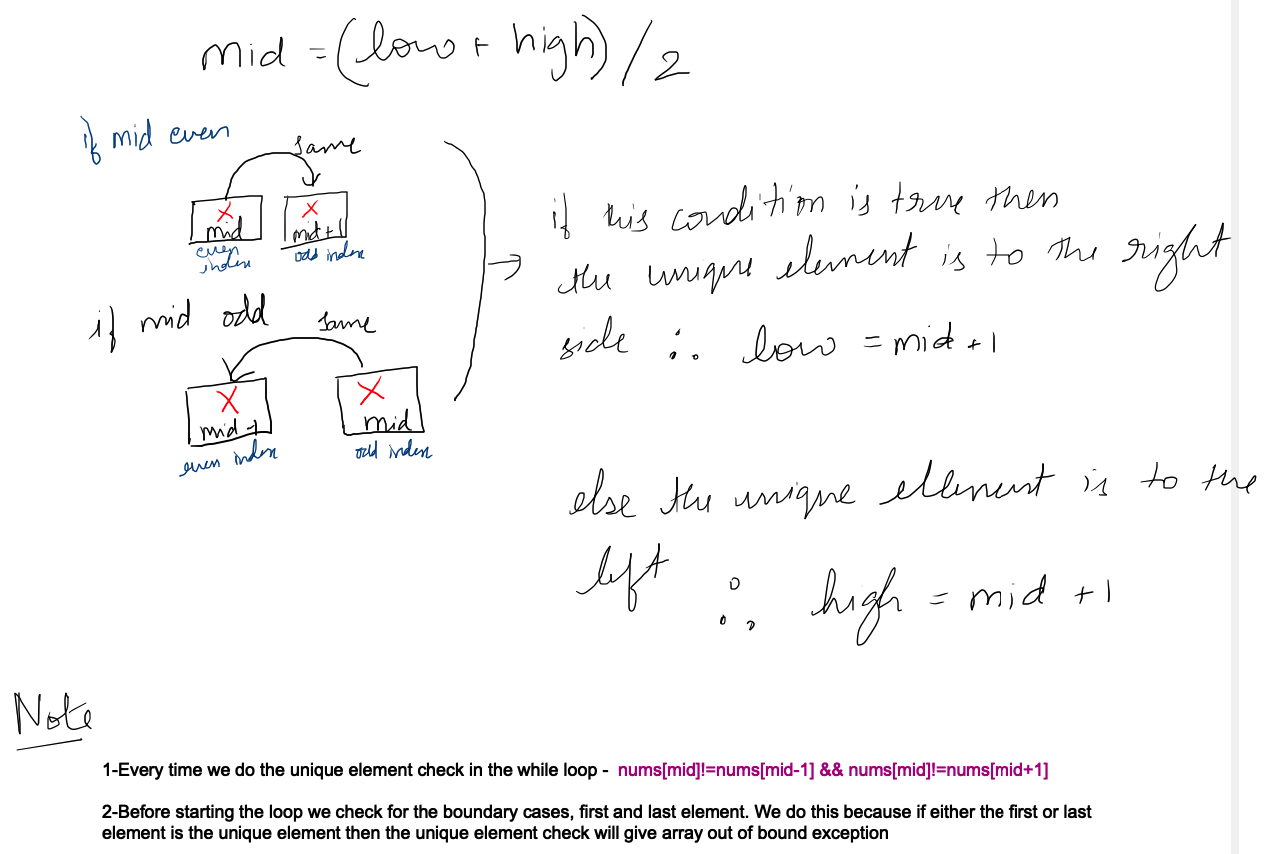 mid = (low + high) / 2
if mid even
same
mid
mid+1
even
index
odd index
if mid odd
same
mid-1
mid
even index
odd index
if this condition is true then
the unique element is to the right
side ∴ low = mid + 1
else the unique ellement is to the
left ∴ high = mid + 1
Note
1-Every time we do the unique element check in the while loop - nums[mid]!=nums[mid-1] && nums[mid]!=nums[mid+1]
2-Before starting the loop we check for the boundary cases, first and last element. We do this because if either the first or last
element is the unique element then the unique element check will give array out of bound exception